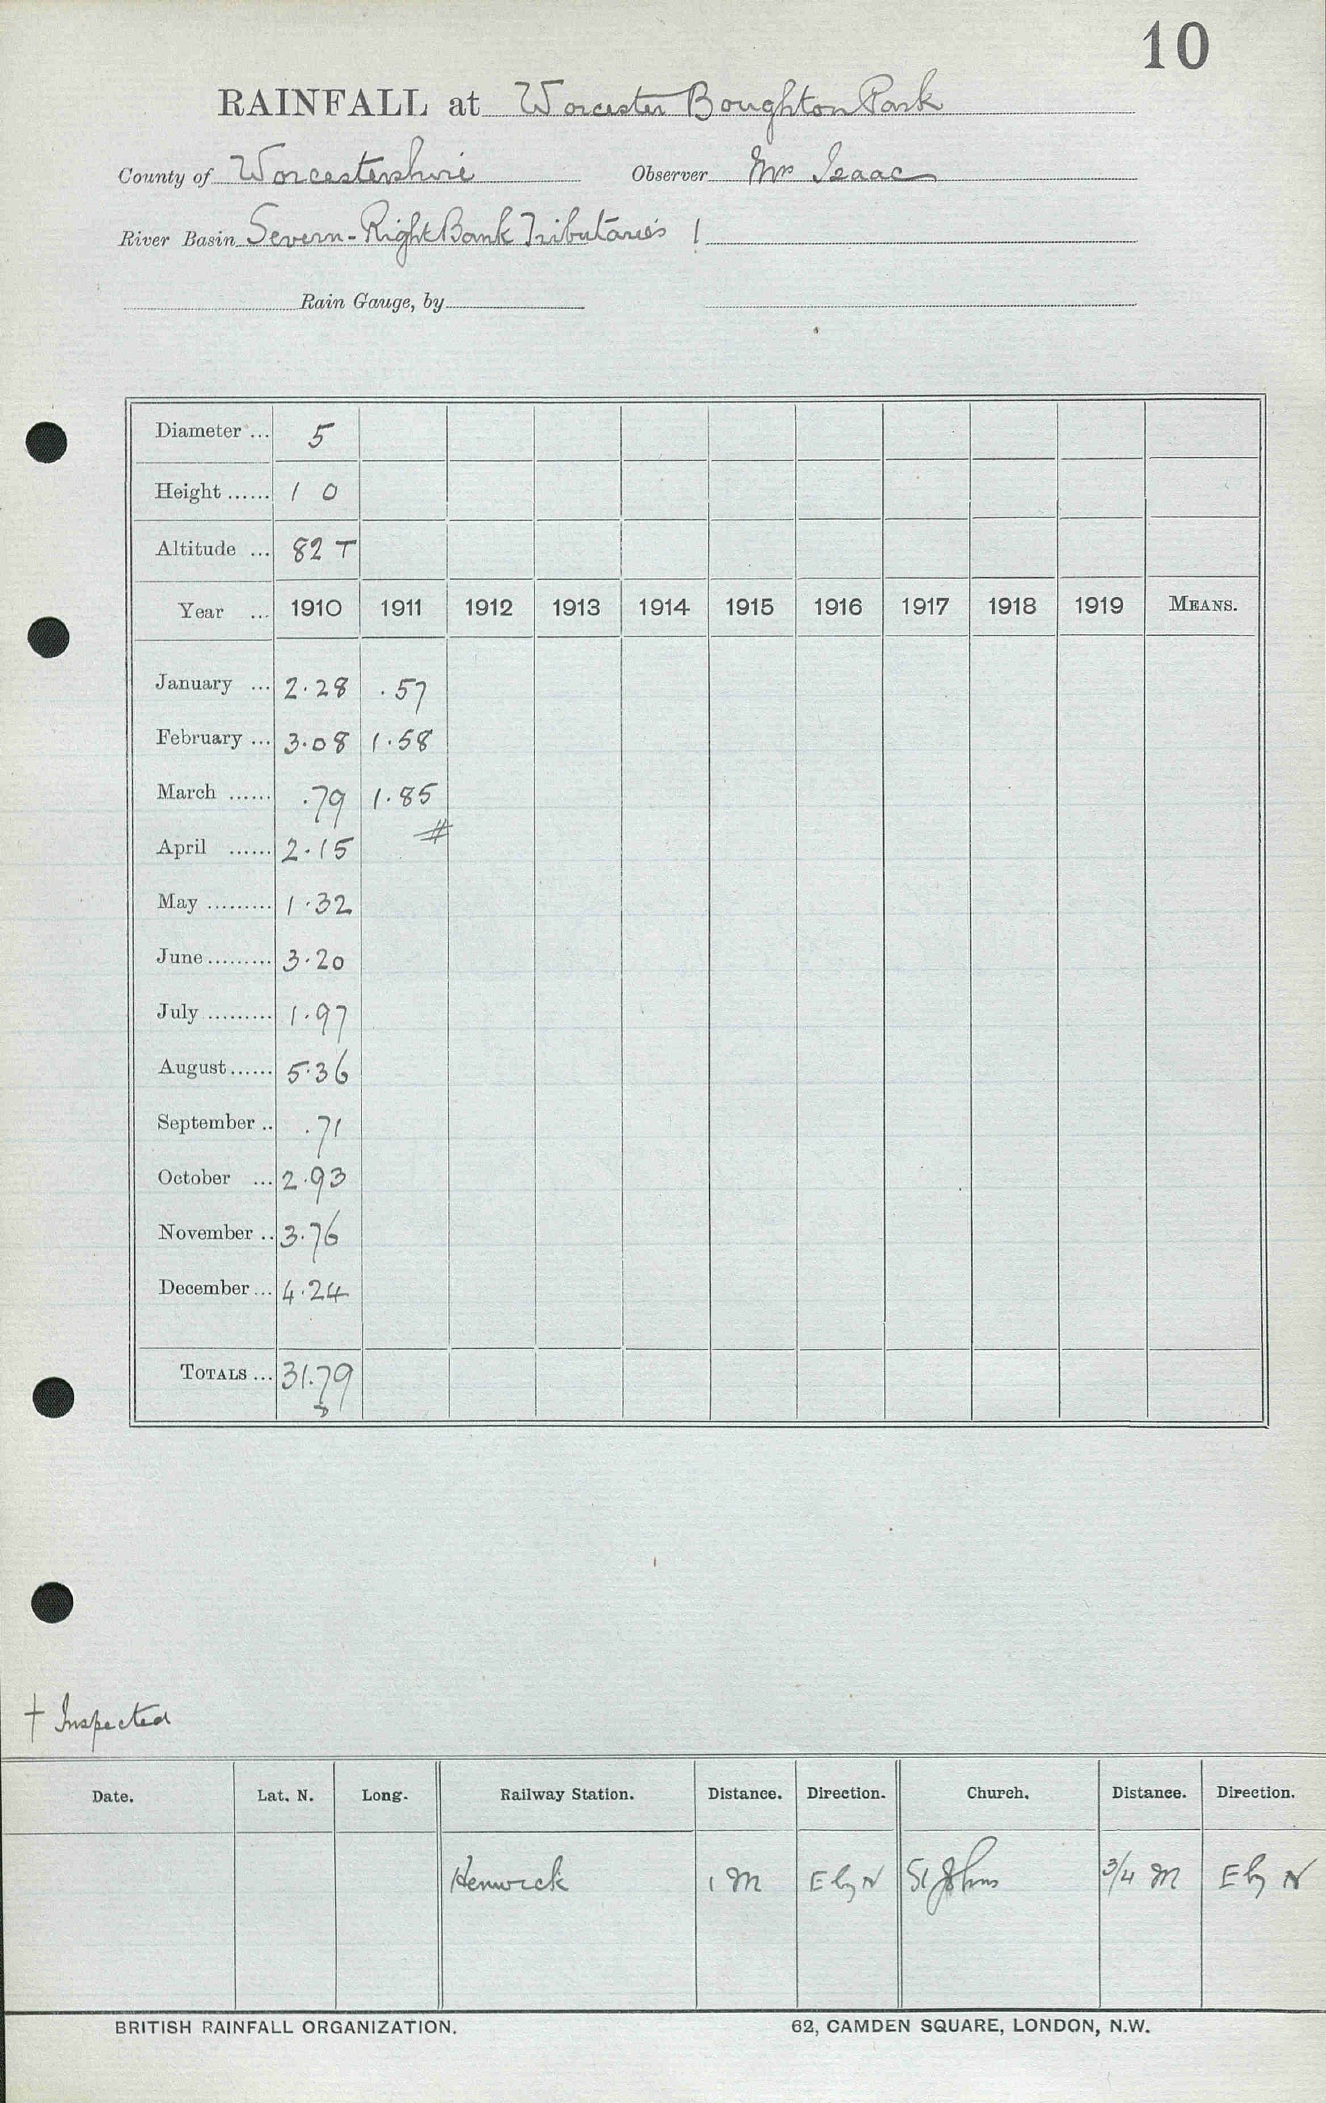 10
RAINFALL at Worcester Boughton Park
County of Worcestershire Observer Mr Isaac
River Basin Severn - Right Bank Tributaries !
Rain Gauge, by
Diameter ... 5
Height ...... 1 0
Altitude ... 82 T
Year ... 1910 1911 1912 1913 1914 1915 1916 1917 1918 1919 MEANS.
January ... 2.28 .57
February ... 3.08 1.58
March ...... .79 1.85
April ...... 2.15 #
May ......... 1.32
June ......... 3.20
July ......... 1.97
August ...... 5.36
September .. .71
October ... 2.93
November .. 3.76
December ... 4.24
TOTALS ... 31.79
† Inspected
Date. Lat. N. Long. Railway Station. Distance. Direction. Church. Distance. Direction.
Henwick 1 M E by N St Johns 3/4 M E by N
BRITISH RAINFALL ORGANIZATION. 62, CAMDEN SQUARE, LONDON, N.W.